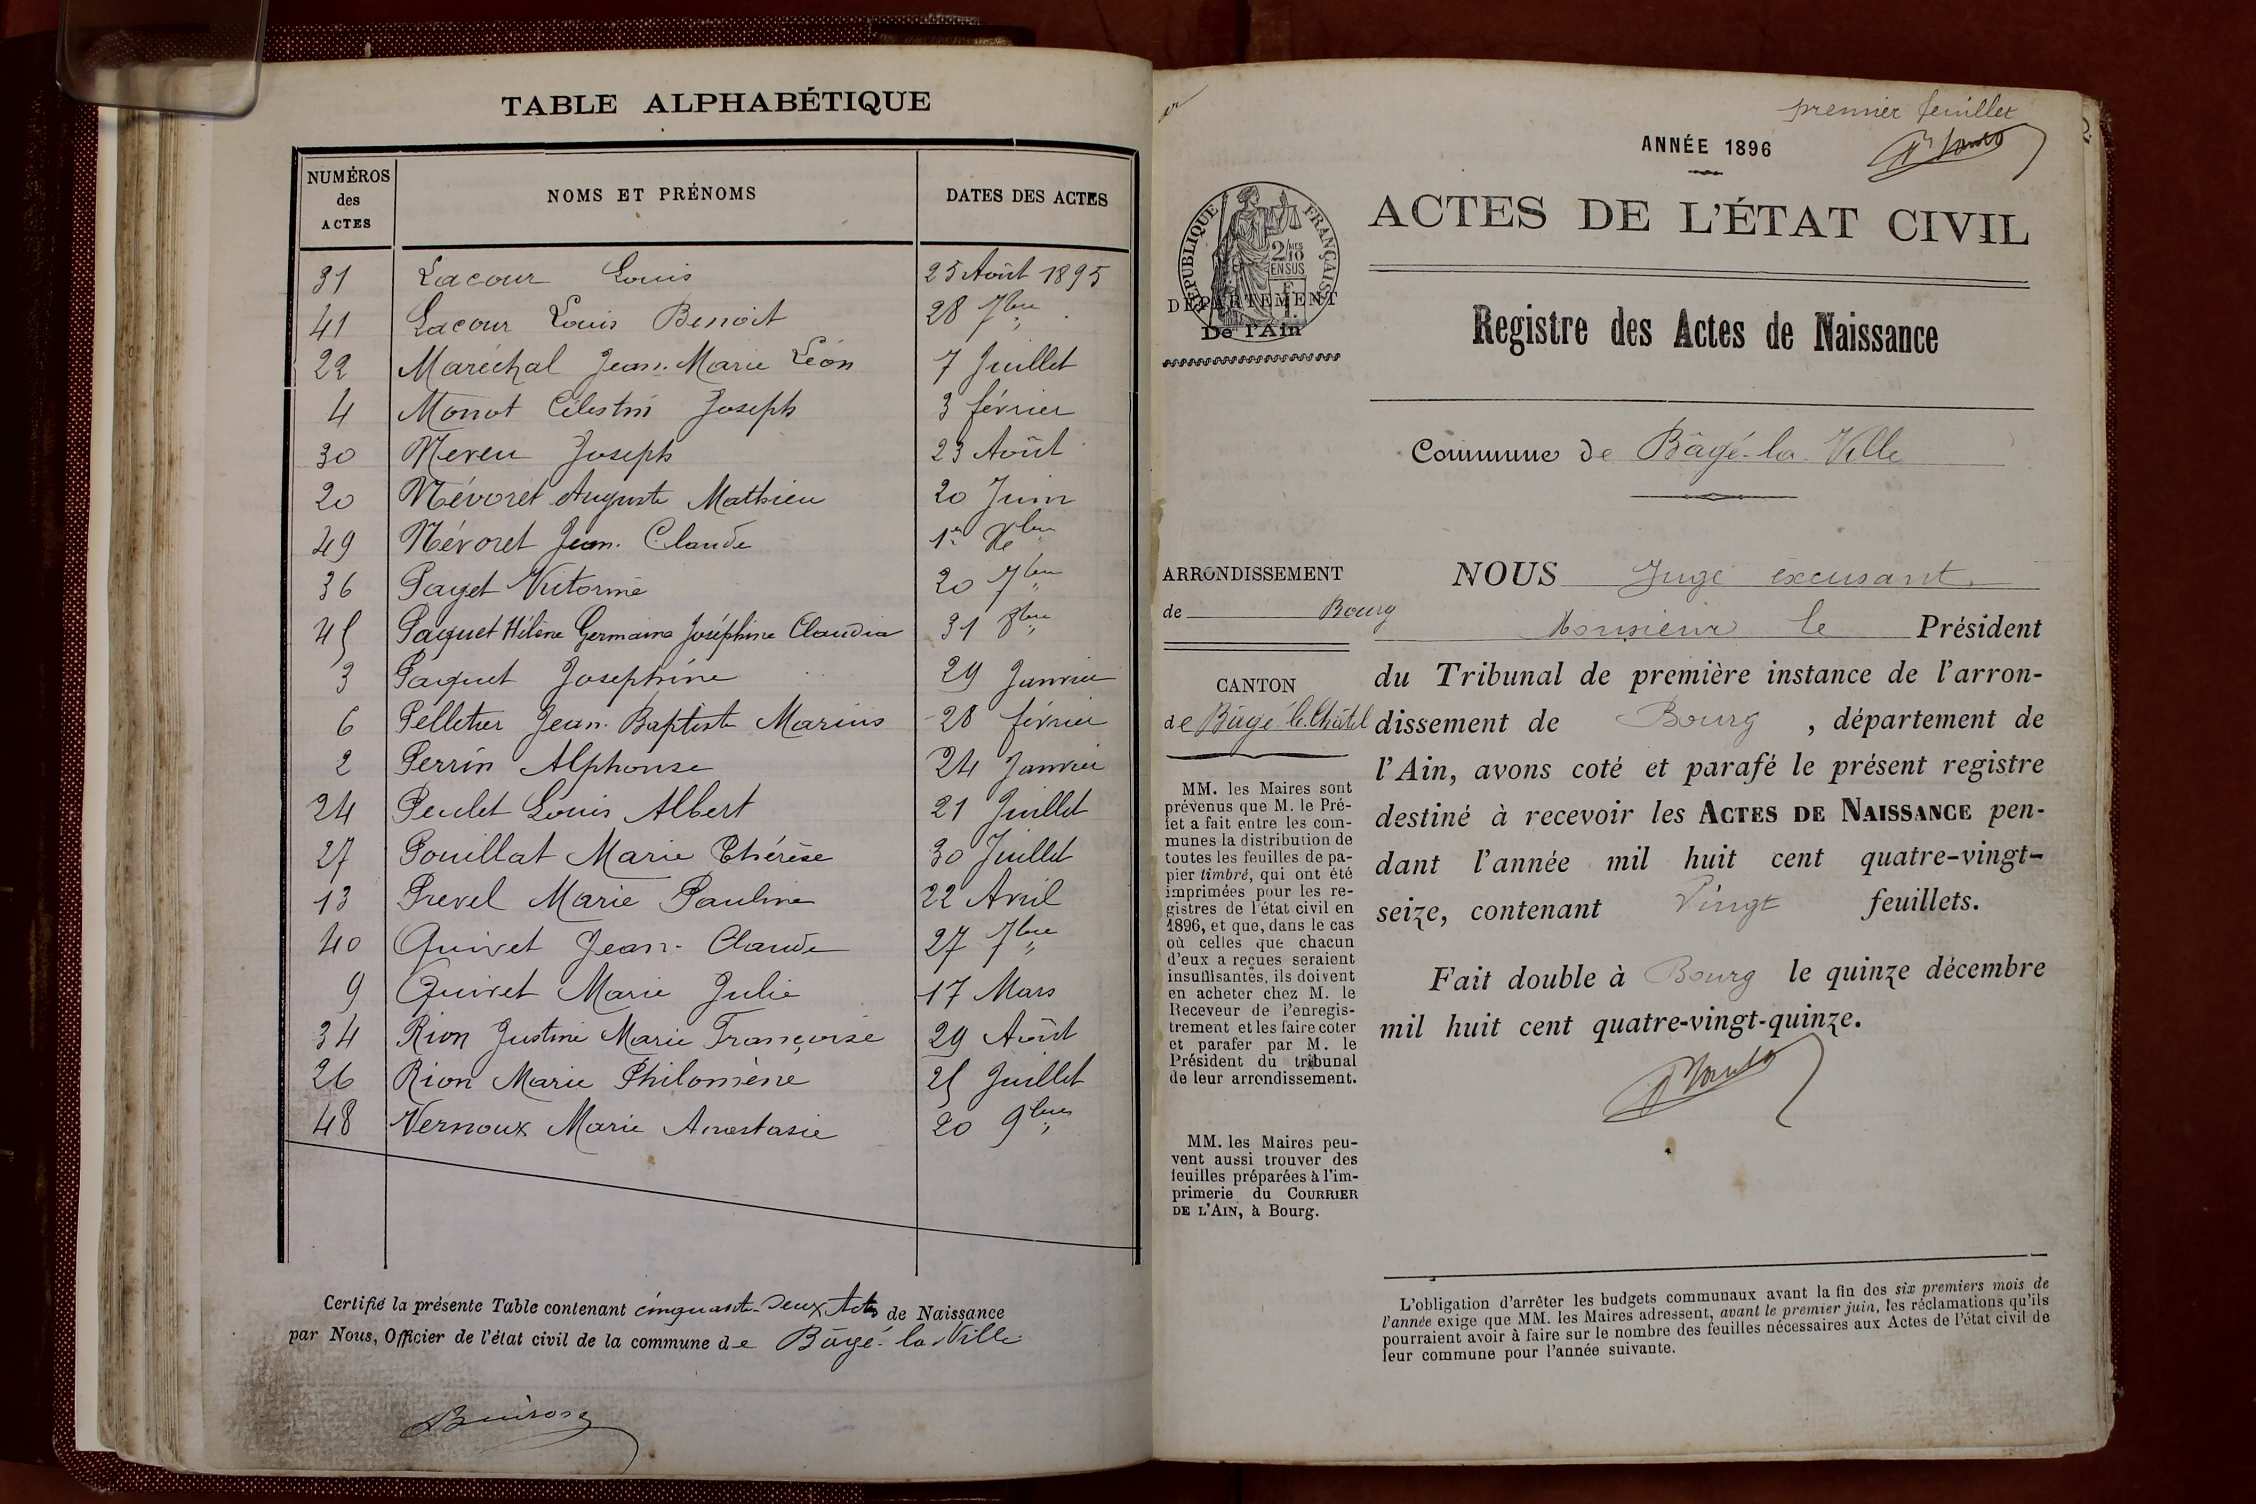 TABLE ALPHABÉTIQUE
NUMÉROS des ACTES NOMS ET PRÉNOMS DATES DES ACTES
31 Lacour Louis 25 Août 1895
41 Lacour Louis Benoit 28 7bre "
22 Maréchal Jean-Marie Léon 7 Juillet
4 Monot Célestin Joseph 3 février
30 Neveu Joseph 23 Août
20 Névoret Auguste Mathieu 20 Juin
49 Névoret Jean-Claude 1er Xbre "
36 Payet Victorine 20 7bre "
45 Paquet Hélène Germaine Joséphine Claudia 31 8bre "
3 Paquet Joséphine 29 Janvier
6 Pelletier Jean-Baptiste Marius 28 février
2 Perrin Alphonse 24 Janvier
24 Peulet Louis Albert 21 Juillet
27 Pouillat Marie Thérèse 30 Juillet
13 Prevel Marie Pauline 22 Avril
40 Quivet Jean-Claude 27 7bre "
9 Quivet Marie Julie 17 Mars
34 Rion Justine Marie Françoise 29 Août
26 Rion Marie Philomène 25 Juillet
48 Vernoux Marie Anastasie 20 9bre "
Certifié la présente Table contenant cinquante-deux Actes de Naissance
par Nous, Officier de l'état civil de la commune de Bâgé-la-Ville
premier feuillet
ANNÉE 1896
RÉPUBLIQUE FRANÇAISE
2/10MES
EN SUS
DÉPARTEMENT
De l'Ain
ACTES DE L'ÉTAT CIVIL
Registre des Actes de Naissance
Commune de Bâgé-la-Ville
ARRONDISSEMENT
de Bourg
CANTON
de Bâgé-le-Châtel
MM. les Maires sont
prévenus que M. le Pré-
fet a fait entre les com-
munes la distribution de
toutes les feuilles de pa-
pier timbré, qui ont été
imprimées pour les re-
gistres de l'état civil en
1896, et que, dans le cas
où celles que chacun
d'eux a reçues seraient
insuffisantes, ils doivent
en acheter chez M. le
Receveur de l'enregis-
trement et les faire coter
et parafer par M. le
Président du tribunal
de leur arrondissement.
MM. les Maires peu-
vent aussi trouver des
feuilles préparées à l'im-
primerie du COURRIER
DE L'AIN, à Bourg.
NOUS Juge excusant
Monsieur le Président
du Tribunal de première instance de l'arron-
dissement de Bourg , département de
l'Ain, avons coté et parafé le présent registre
destiné à recevoir les ACTES DE NAISSANCE pen-
dant l'année mil huit cent quatre-vingt-
seize, contenant Vingt feuillets.
Fait double à Bourg le quinze décembre
mil huit cent quatre-vingt-quinze.
L'obligation d'arrêter les budgets communaux avant la fin des six premiers mois de
l'année exige que MM. les Maires adressent, avant le premier juin, les réclamations qu'ils
pourraient avoir à faire sur le nombre des feuilles nécessaires aux Actes de l'état civil de
leur commune pour l'année suivante.